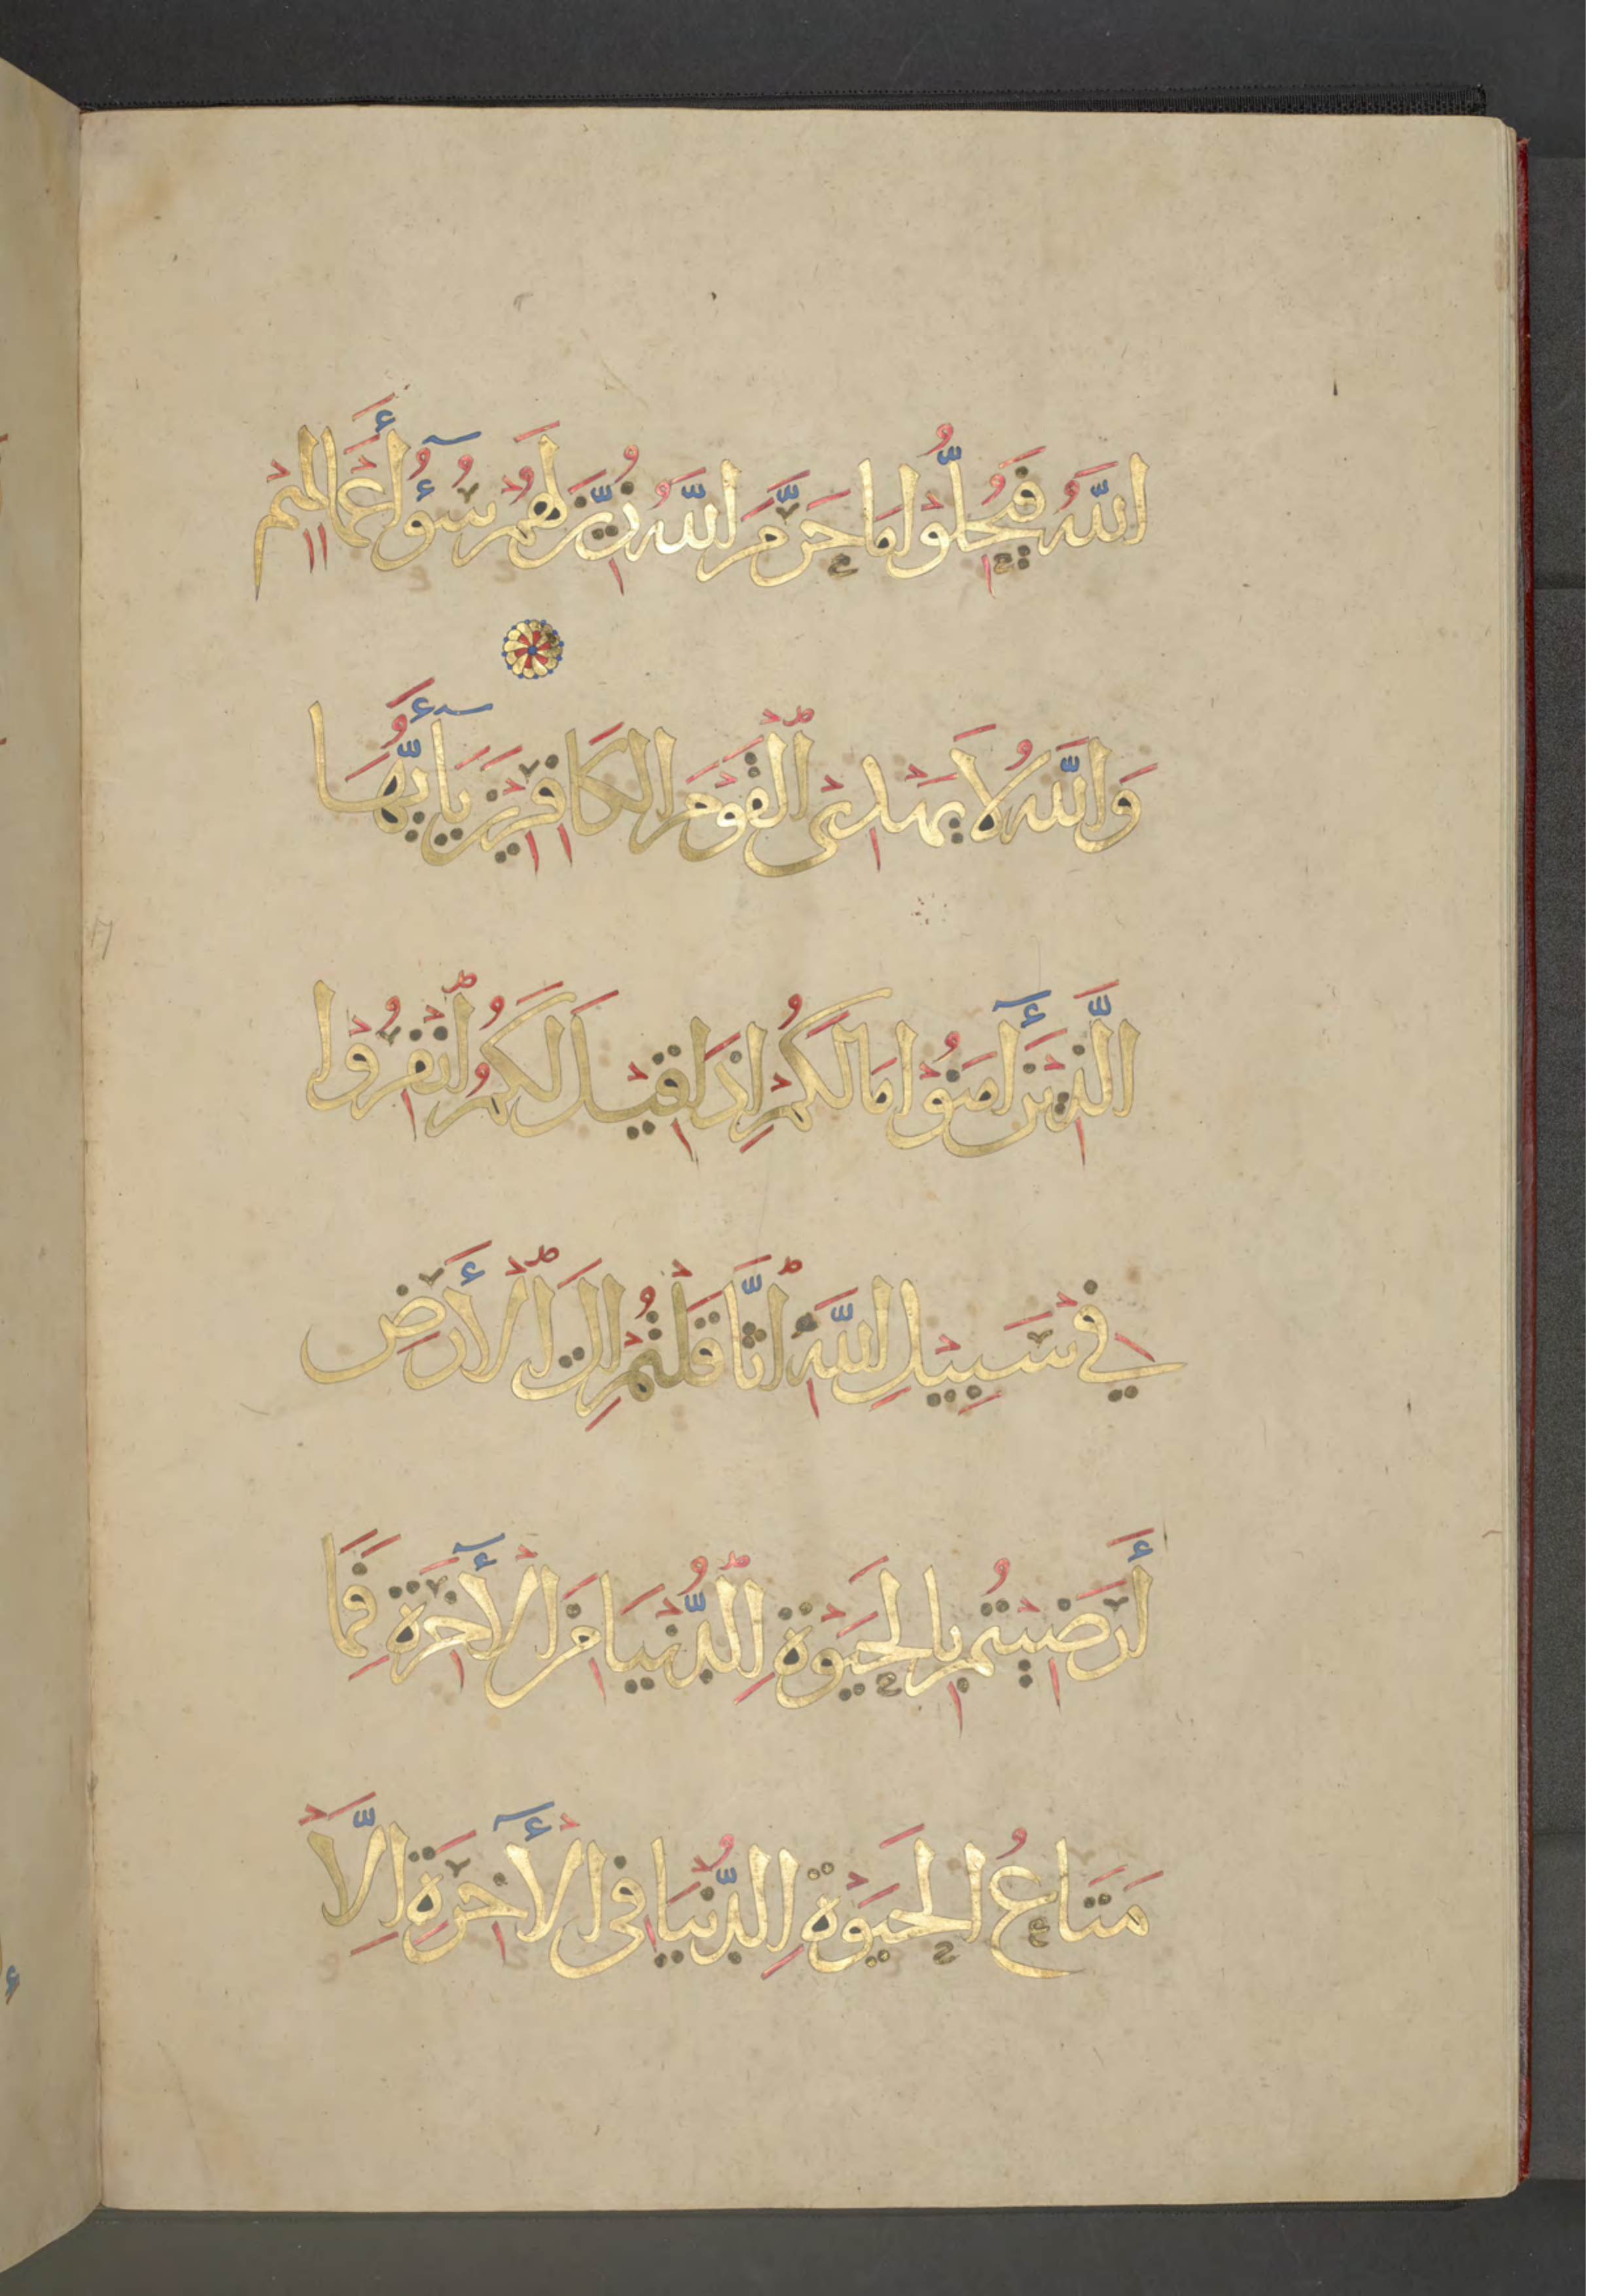 اللَّهُ فَيُحِلُّوْا مَا حَرَّمَ اللَّهُ زُيِّنَ لَهُمْ سُوْٓءُ أَعْمَالِهِمْ
وَاللَّهُ لَا يَهْدِىْ الْقَوْمَ الْكَافِرِيْنَ يَآأَيُّهَا
الَّذِيْنَ أٓمَنُوْا مَا لَكُمْ اِذَا قِيْلَ لَكُمُ انْفِرُوْا
فِيْ سَبِيْلِ اللَّهِ اثَّاقَلْتُمْ اِلَى الْأَرْضِ
أَرَضِيْتُمْ بِالْحَيَوٰةِ الدُّنْيَا مِنَ الْأٓخِرَةِ فَمَا
مَتَاعُ الْحَيَوٰةِ الدُّنْيَا فِى الْأٓخِرَةِ اِلَّا